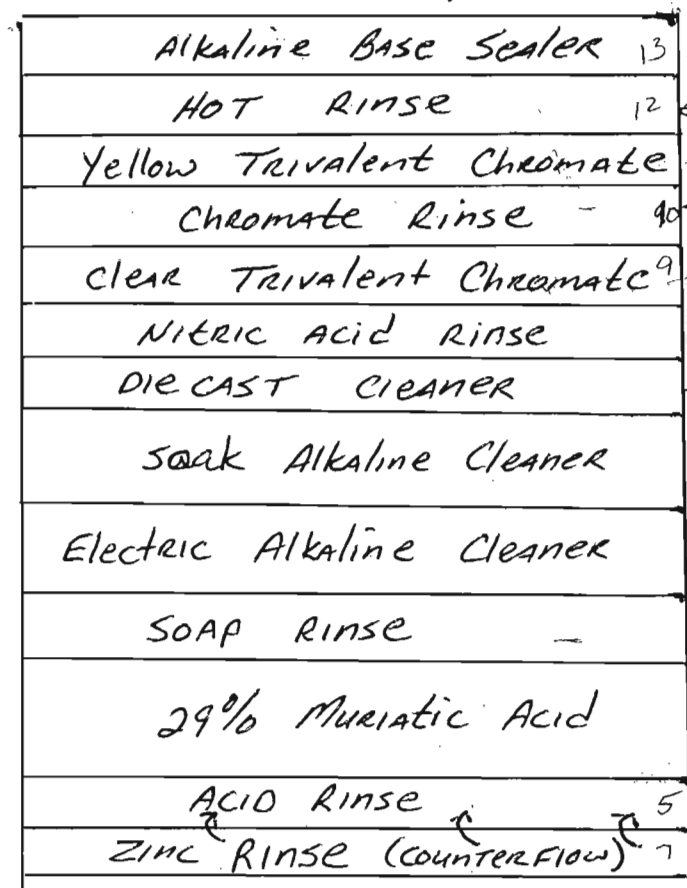 Alkaline Base Sealer 13
Hot Rinse 12
Yellow Trivalent Chromate
Chromate Rinse - 10
Clear Trivalent Chromate 9
Nitric Acid Rinse
Die Cast Cleaner
Soak Alkaline Cleaner
Electric Alkaline Cleaner
Soap Rinse -
29% Muriatic Acid
Acid Rinse 5
Zinc Rinse (Counterflow) 7